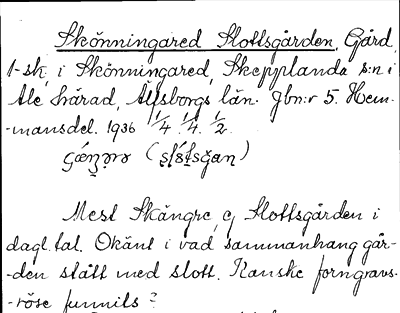 Skönningared Slottsgården, Gård,
1-sk, i Skönningared, Skepplanda s:n i
Ale härad, Älfsborgs län. Jbn:r 5. Hem-
-mansdel. 1936 1/4. 1/4. 1/2.
Mest Skängre, ej Slottsgården i
dagl. tal. Okänt i vad sammanhang går-
-den stått med slott. Kanske forngravs-
-röse funnits?